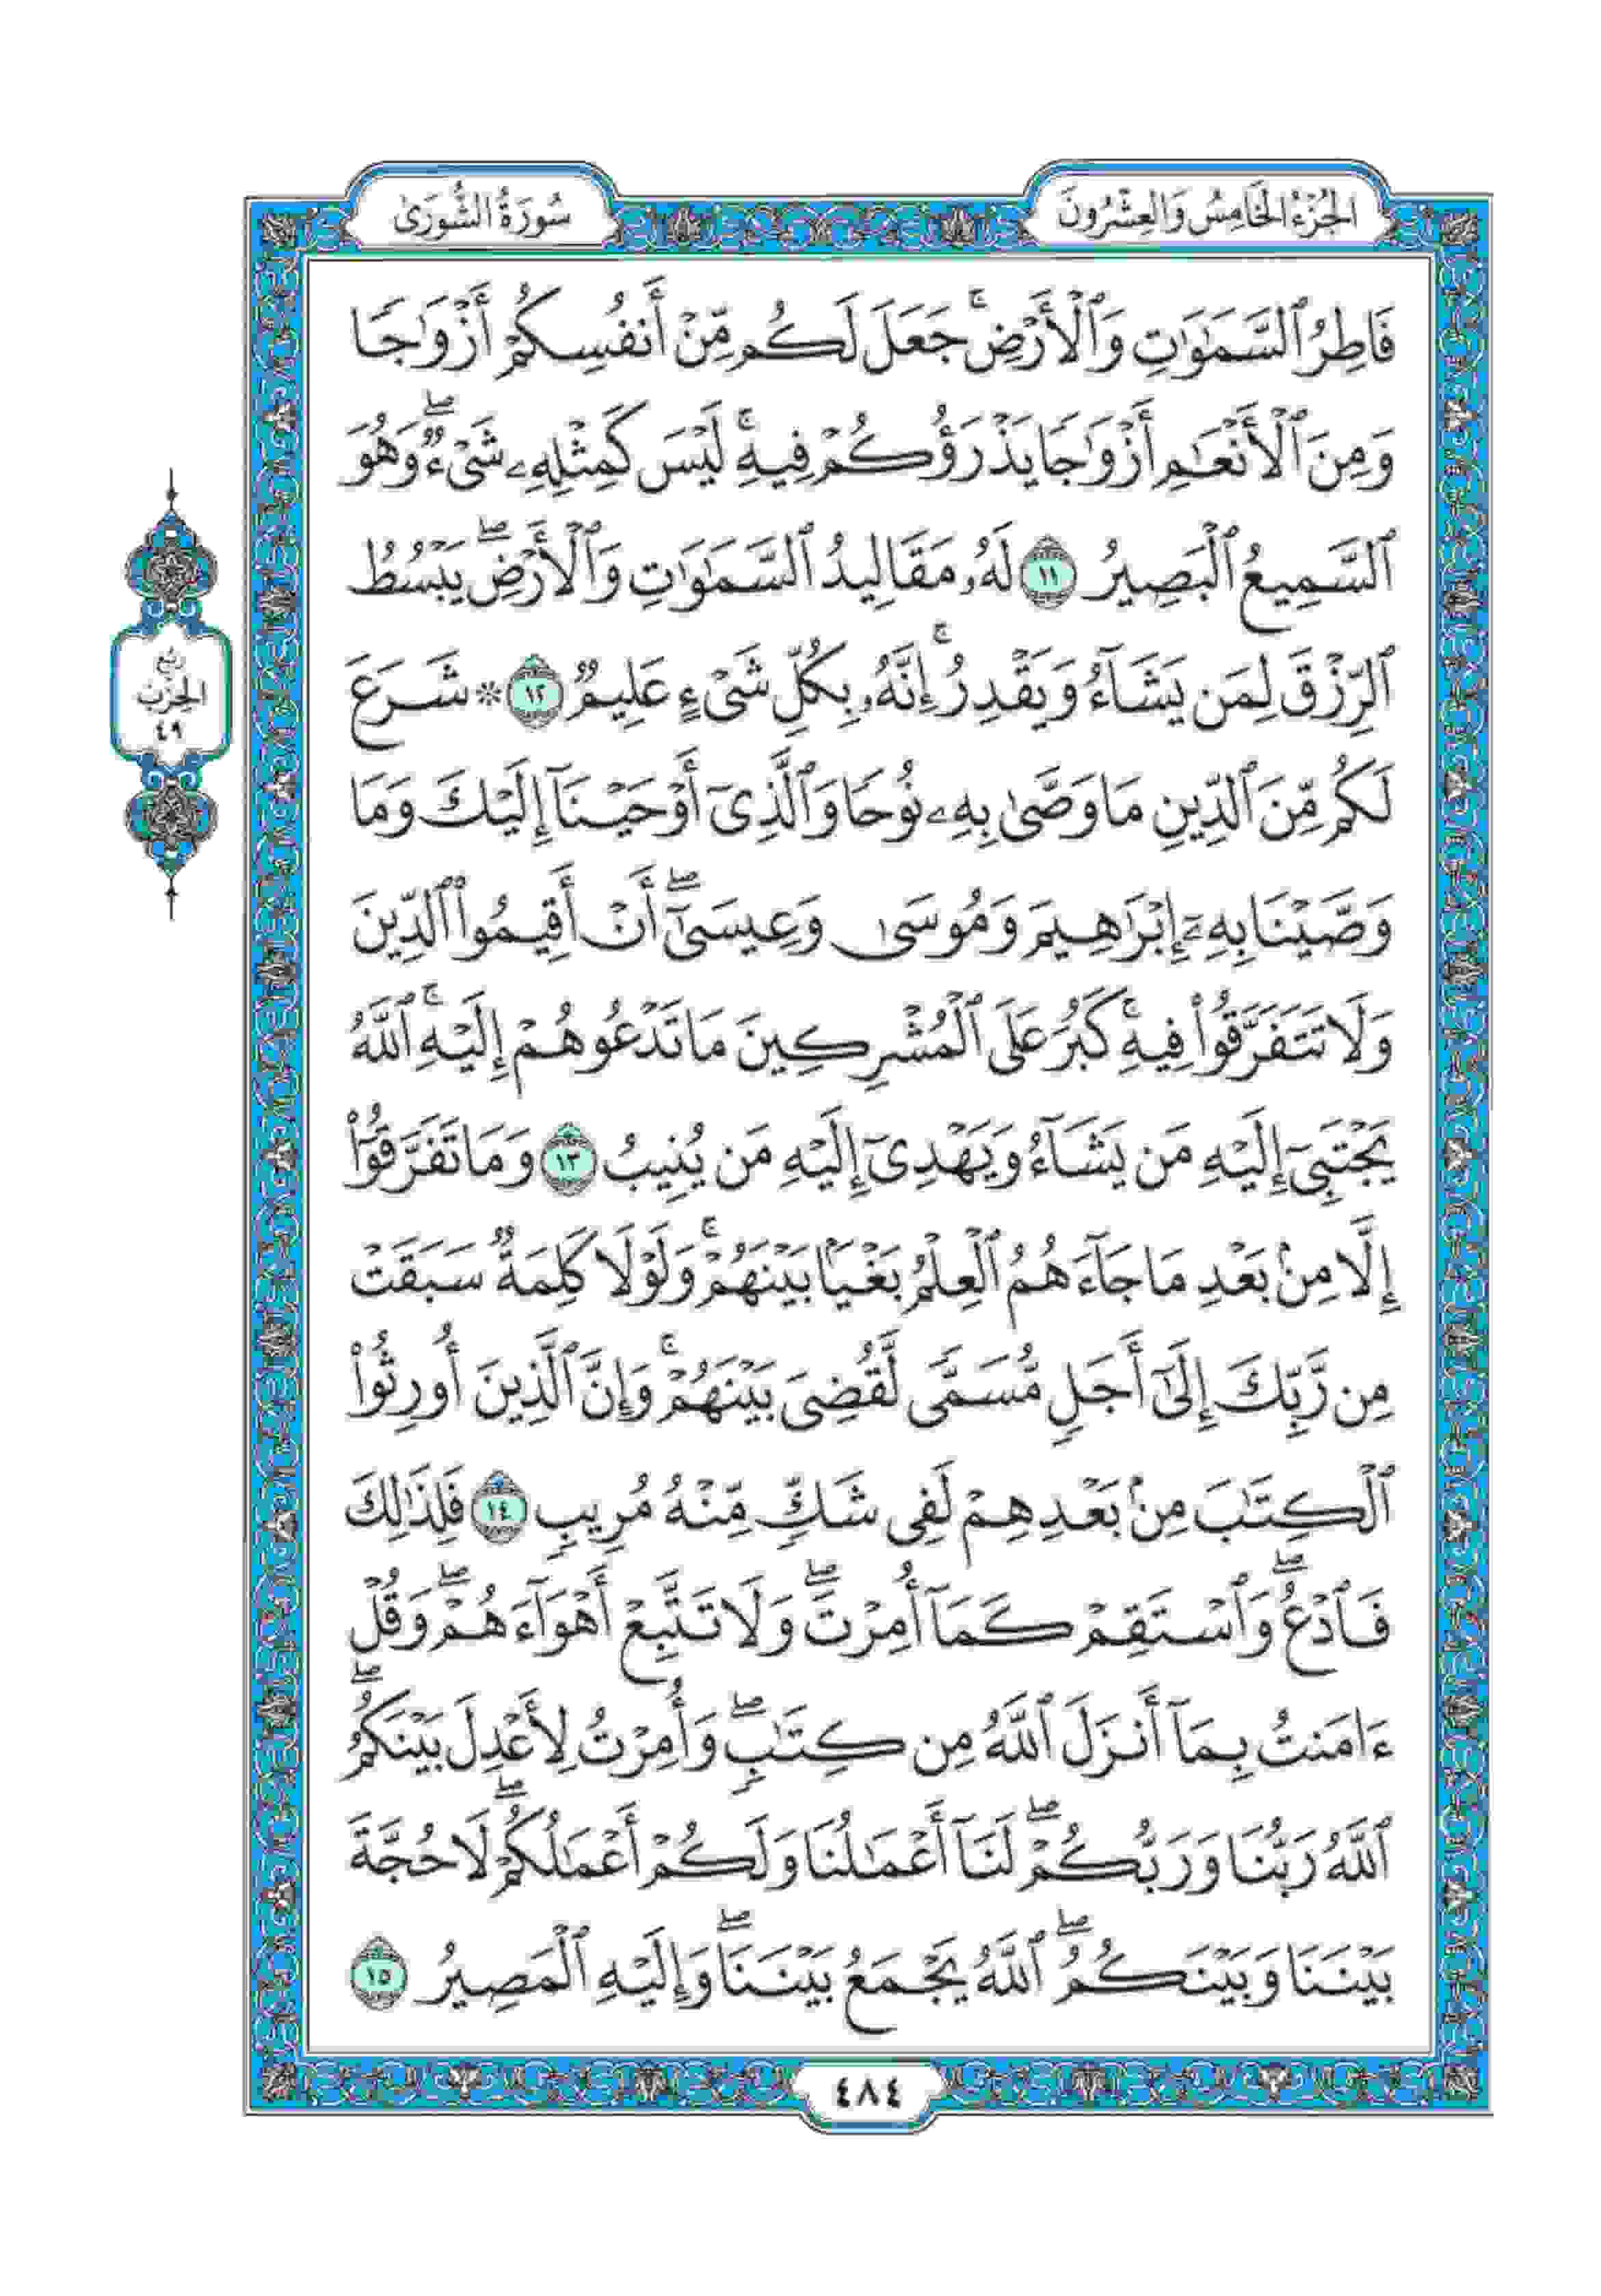 الجُزْءُ الخَامِسُ وَالعِشْرُونَ
سُورَةُ الشُّورَىٰ
فَاطِرُ ٱلسَّمَٰوَٰتِ وَٱلْأَرْضِۚ جَعَلَ لَكُم مِّنْ أَنفُسِكُمْ أَزْوَٰجًا
وَمِنَ ٱلْأَنْعَٰمِ أَزْوَٰجًا يَذْرَؤُكُمْ فِيهِۚ لَيْسَ كَمِثْلِهِۦ شَىْءٌۖ وَهُوَ
ٱلسَّمِيعُ ٱلْبَصِيرُ ١١ لَهُۥ مَقَالِيدُ ٱلسَّمَٰوَٰتِ وَٱلْأَرْضِۖ يَبْسُطُ
ٱلرِّزْقَ لِمَن يَشَآءُ وَيَقْدِرُۚ إِنَّهُۥ بِكُلِّ شَىْءٍ عَلِيمٌ ١٢ * شَرَعَ
لَكُم مِّنَ ٱلدِّينِ مَا وَصَّىٰ بِهِۦ نُوحًا وَٱلَّذِىٓ أَوْحَيْنَآ إِلَيْكَ وَمَا
وَصَّيْنَا بِهِۦٓ إِبْرَٰهِيمَ وَمُوسَىٰ وَعِيسَىٰٓۖ أَنْ أَقِيمُوا۟ ٱلدِّينَ
وَلَا تَتَفَرَّقُوا۟ فِيهِۚ كَبُرَ عَلَى ٱلْمُشْرِكِينَ مَا تَدْعُوهُمْ إِلَيْهِۚ ٱللَّهُ
يَجْتَبِىٓ إِلَيْهِ مَن يَشَآءُ وَيَهْدِىٓ إِلَيْهِ مَن يُنِيبُ ١٣ وَمَا تَفَرَّقُوٓا۟
إِلَّا مِنۢ بَعْدِ مَا جَآءَهُمُ ٱلْعِلْمُ بَغْيًۢا بَيْنَهُمْۚ وَلَوْلَا كَلِمَةٌ سَبَقَتْ
مِن رَّبِّكَ إِلَىٰٓ أَجَلٍ مُّسَمًّى لَّقُضِىَ بَيْنَهُمْۚ وَإِنَّ ٱلَّذِينَ أُورِثُوا۟
ٱلْكِتَٰبَ مِنۢ بَعْدِهِمْ لَفِى شَكٍّ مِّنْهُ مُرِيبٍ ١٤ فَلِذَٰلِكَ
فَٱدْعُۖ وَٱسْتَقِمْ كَمَآ أُمِرْتَۖ وَلَا تَتَّبِعْ أَهْوَآءَهُمْۖ وَقُلْ
ءَامَنتُ بِمَآ أَنزَلَ ٱللَّهُ مِن كِتَٰبٍۖ وَأُمِرْتُ لِأَعْدِلَ بَيْنَكُمُۖ
ٱللَّهُ رَبُّنَا وَرَبُّكُمْۖ لَنَآ أَعْمَٰلُنَا وَلَكُمْ أَعْمَٰلُكُمْۖ لَا حُجَّةَ
بَيْنَنَا وَبَيْنَكُمُۖ ٱللَّهُ يَجْمَعُ بَيْنَنَاۖ وَإِلَيْهِ ٱلْمَصِيرُ ١٥
ربع
الحزب
٤٩
٤٨٤